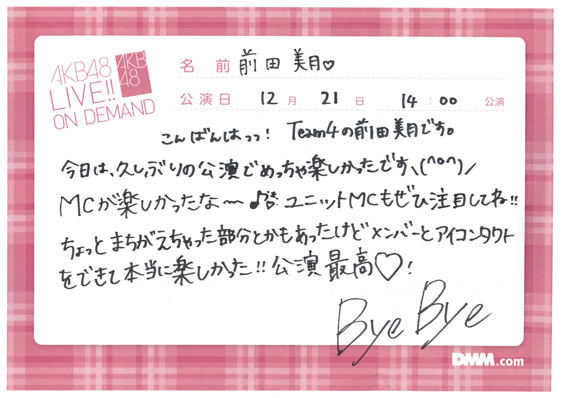 AKB48
LIVE!!
ON DEMAND
AKB
48
名 前 前田 美月♡
公演日 12月 21日 14:00 公演
こんばんはっっ! Team4の前田美月です。
今日は、久しぶりの公演でめっちゃ楽しかったです、(^o^)/
MCが楽しかったな〜♪ ユニットMCもぜひ注目してね!!
ちょっとまちがえちゃった部分とかもあったけどメンバーとアイコンタクト
をできて本当に楽しかった!! 公演最高♡!
Bye Bye
DMM.com